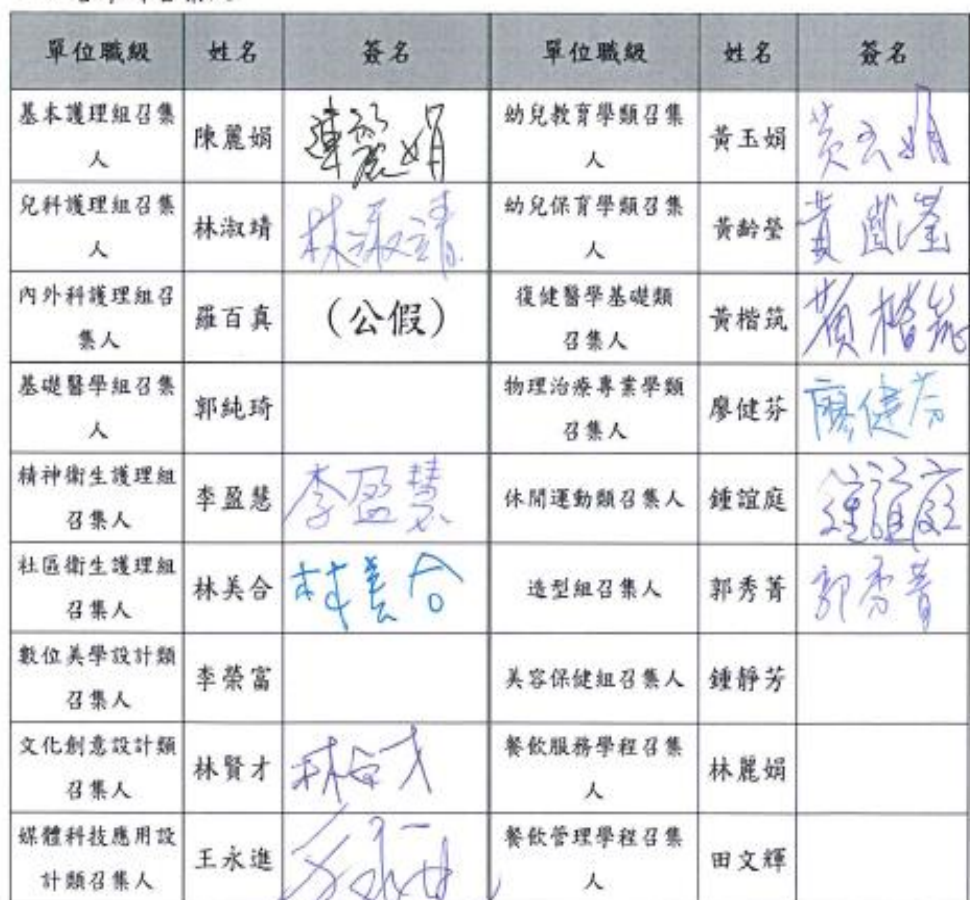 單位職級 姓名 簽名 單位職級 姓名 簽名
基本護理組召集
人
陳麗娟
陳麗娟
幼兒教育學類召集
人
黃玉娟
黃玉娟
兒科護理組召集
人
林淑靖
林淑靖
幼兒保育學類召集
人
黃齡瑩
黃齡瑩
內外科護理組召
集人
羅百真
(公假)
復健醫學基礎類
召集人
黃楷筑
黃楷筑
基礎醫學組召集
人
郭純琦
物理治療專業學類
召集人
廖健芬
廖健芬
精神衛生護理組
召集人
李盈慧
李盈慧
休閒運動類召集人
鍾誼庭
鍾誼庭
社區衛生護理組
召集人
林美合
林美合
造型組召集人
郭秀菁
郭秀菁
數位美學設計類
召集人
李榮富
美容保健組召集人
鍾靜芳
文化創意設計類
召集人
林賢才
林賢才
餐飲服務學程召集
人
林麗娟
媒體科技應用設
計類召集人
王永進
餐飲管理學程召集
人
田文輝